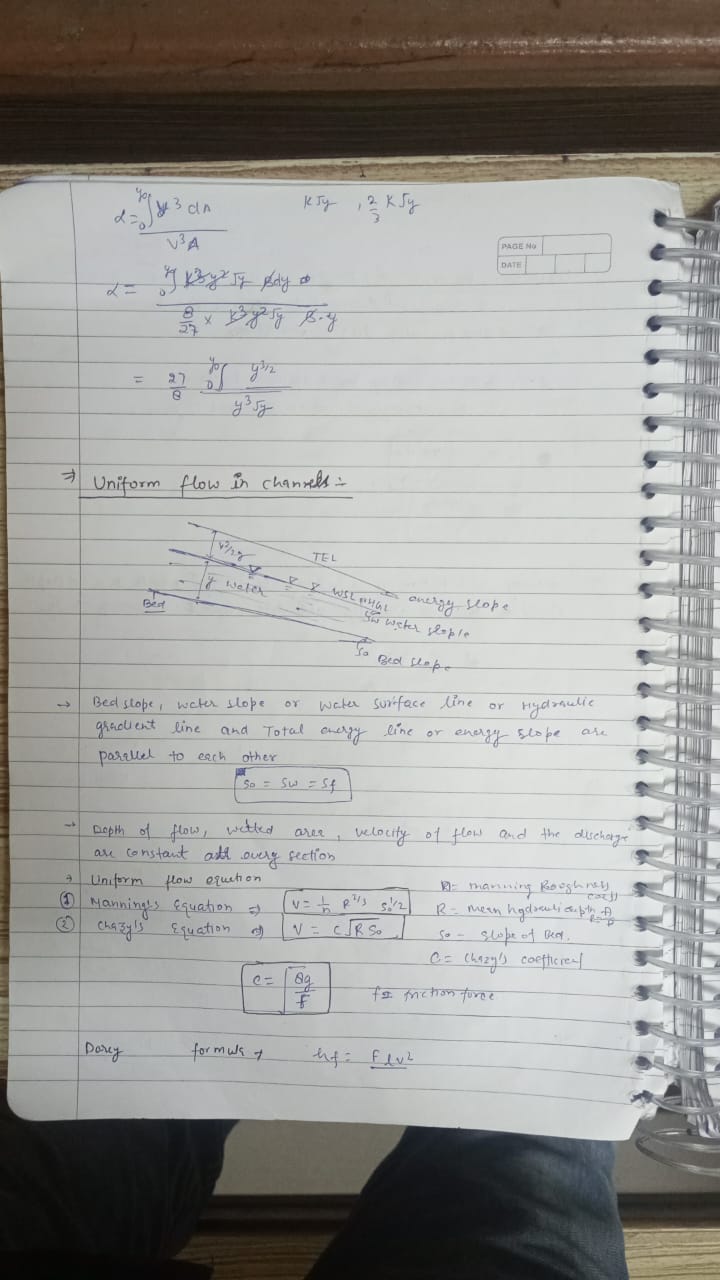 α = ₀∫^y₀ v³ dA / V³A
K√y , 2/3 K√y
PAGE No
DATE
α = ₀∫^y K³y² √y B dy / 8/27 × K³y²√y B·y
= 27/8 ₀∫^y₀ y^3/2 / y³√y
⇒ Uniform flow in channels :-
V²/2g
TEL
y water
WSL HGL
energy slope
Bed
Sw water slople
So Bed slope
→ Bed slope, water slope or water surface line or Hydraulic
gradient line and Total energy line or energy slope are
parallel to each other
So = Sw = Sf
→ Depth of flow, wetted area, velocity of flow and the discharge
are constant every section
→ Uniform flow equction
① Manning's Equation ⇒ V = 1/n R^2/3 So^1/2
② Chazy's Equation ⇒ V = C√R So
n = manning Roughness coeff
R = mean hydraulic depth
So - slope of bed.
C = Chazy's coefficient
C = √8g/f
f = friction force
Darcy formula → hf = F l v²